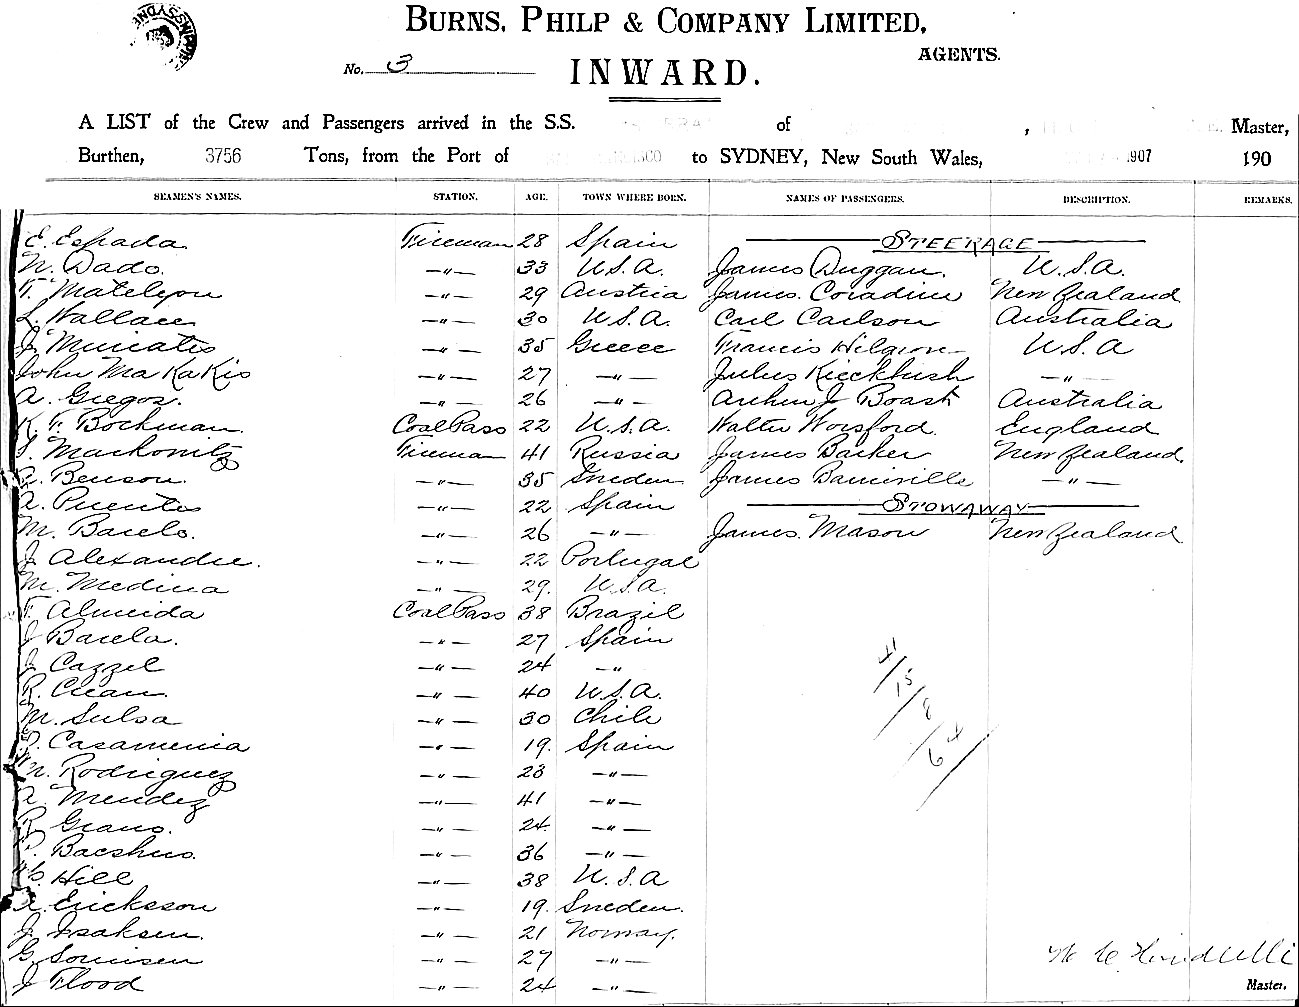 BURNS, PHILP & COMPANY LIMITED,
AGENTS.
No. 3
INWARD.
A LIST of the Crew and Passengers arrived in the S.S. of , Master,
Burthen, 3756 Tons, from the Port of to SYDNEY, New South Wales, 1907 190
SEAMEN'S NAMES. STATION. AGE. TOWN WHERE BORN. NAMES OF PASSENGERS. DESCRIPTION. REMARKS.
E. Espada Fireman 28 Spain STEERAGE
N. Dado. —"— 33 U.S.A. James Duggan. U.S.A.
—"— 29 Austria James Coradine New Zealand
L. Wallace —"— 30 U.S.A. Carl Carlson Australia
J. Muriatis —"— 35 Greece Francis U.S.A
John Makakis —"— 27 —"— Julius —"—
A. Gregos. —"— 26 —"— Arthur J Boast Australia
K. F. Bockman. Coal Pass 22 U.S.A. Walter Worsford. England
Markovitz Fireman 41 Russia James Barker New Zealand.
A. Benson. —"— 35 Sweden James —"—
A. Puentes —"— 22 Spain STOWAWAY
M. Barelo. —"— 26 —"— James Mason New Zealand
J. Alexandre. —"— 22 Portugal
M. Medina —"— 29. U.S.A.
F. Almeida Coal Pass 38 Brazil
J Barela. —"— 27 Spain
J. Cazzel —"— 24 —"—
R. Crean. —"— 40 U.S.A.
M. Sulsa —"— 30 Chili
Casamenia —"— 19. Spain
M. Rodriguez —"— 23 —"—
A. Mendez —"— 41 —"—
R. —"— 24 —"—
P. —"— 36 —"—
Hill —"— 38 U.S.A
A. Ericksson —"— 19. Sweden.
J. Isaksen. —"— 21 Norway.
G. Sorensen —"— 27 —"—
J Flood —"— 24 —"—
41/15/8/64
Master.